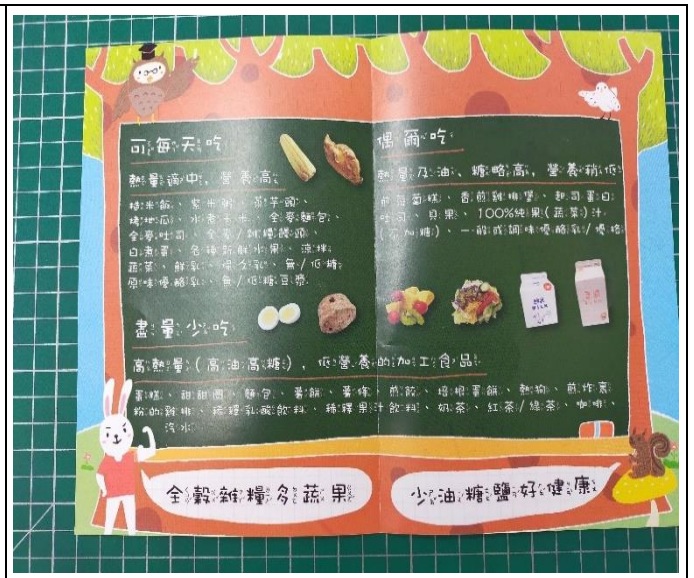 可每天吃
熱量適中,營養高
糙米飯、紫米粥、蒸芋頭、
烤地瓜、水煮玉米、全麥麵包、
全麥吐司、全麥/雜糧饅頭、
白煮蛋、各種新鮮水果、涼拌
蔬菜、鮮乳、保久乳、無/低糖
原味優酪乳、無/低糖豆漿
偶爾吃
熱量及油、糖略高,營養稍低
煎蘿蔔糕、香煎雞排堡、起司蛋白
吐司、貝果、100%純果(蔬菜)汁
(不加糖)、一般或調味優酪乳/優格
盡量少吃
高熱量(高油高糖),低營養的加工食品
蛋糕、甜甜圈、麵包、薯餅、薯條、煎餃、培根蛋餅、熱狗、煎炸裹
粉的雞排、稀釋乳酸飲料、稀釋果汁飲料、奶茶、紅茶/綠茶、咖啡、
汽水
全穀雜糧多蔬果
少油糖鹽好健康